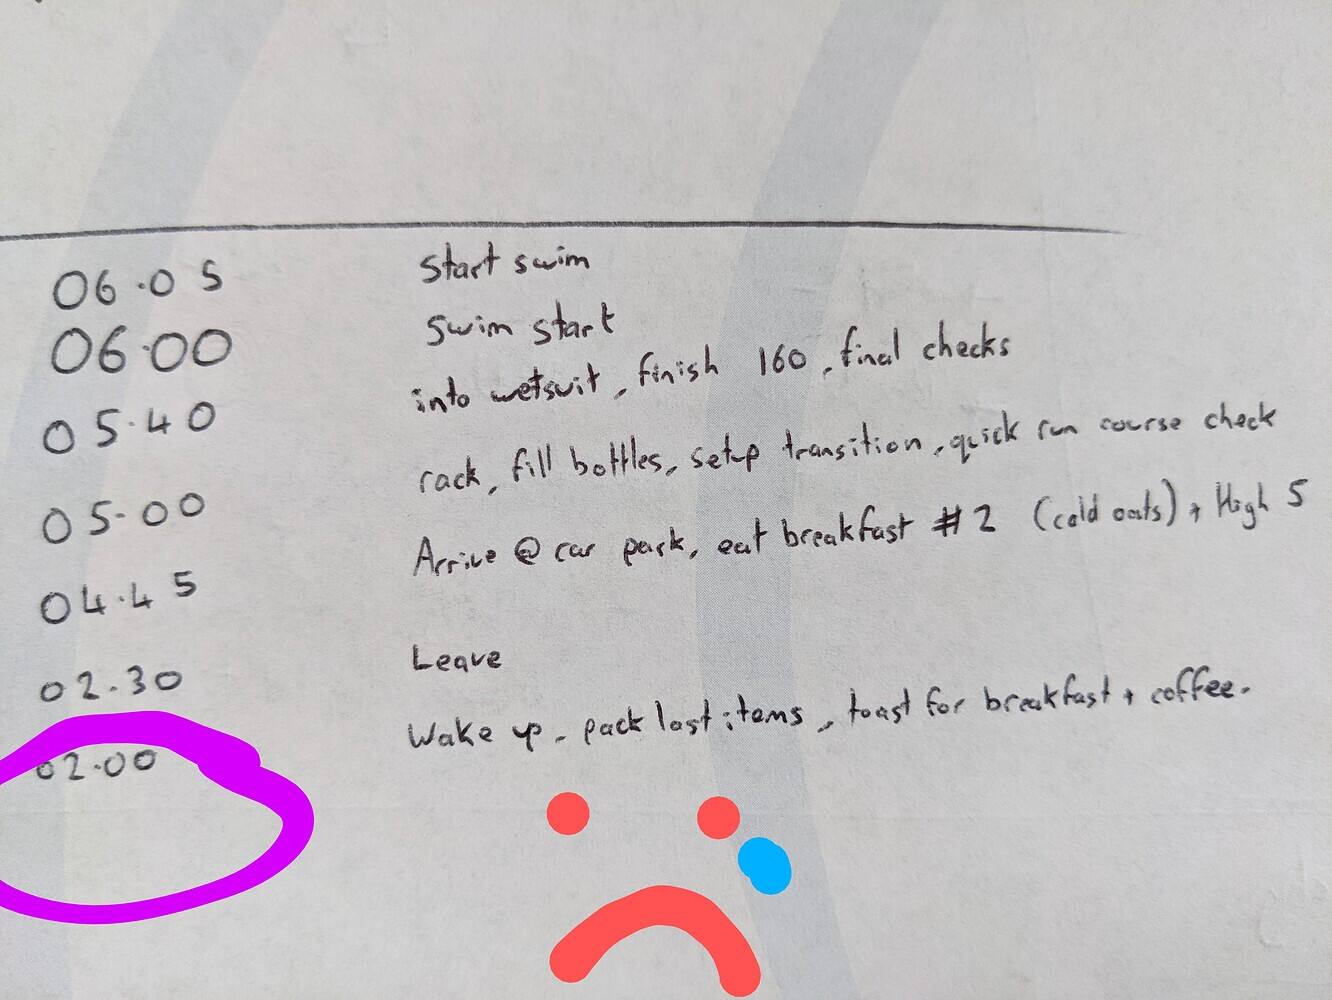 06.05 Start swim
06.00 Swim start
05.40 into wetsuit, finish 160, final checks
05.00 rack, fill bottles, setup transition, quick run course check
04.45 Arrive @ car park, eat breakfast #2 (cold oats) + High 5
02.30 Leave
02.00 Wake up, pack last items, toast for breakfast + coffee.